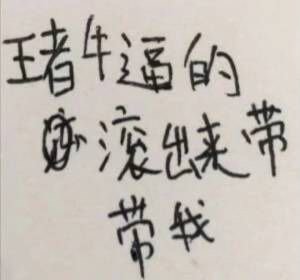 王者牛逼的
滚出来带
带我